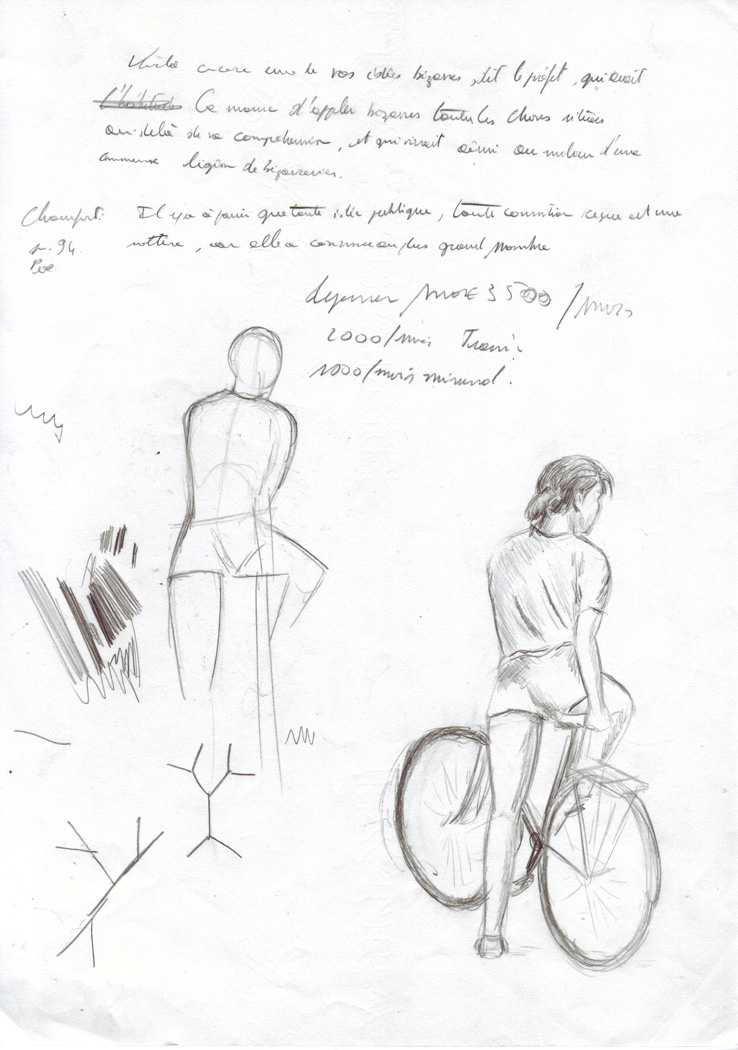 Voilà encore une de vos idées bizarres, dit le préfet, qui avait
l'habitude Ce manie d'appeler bizarres toutes les choses situées
au-delà de sa compréhension, et qui vivait ainsi au milieu d'une
immense légion de bizarreries.
Chamfort: Il y a à parier que toute idée publique, toute convention reçue est une
p. 94. sottise, car elle a convenu au plus grand nombre
Poe
3500 /mois
2000/mois
1000/mois